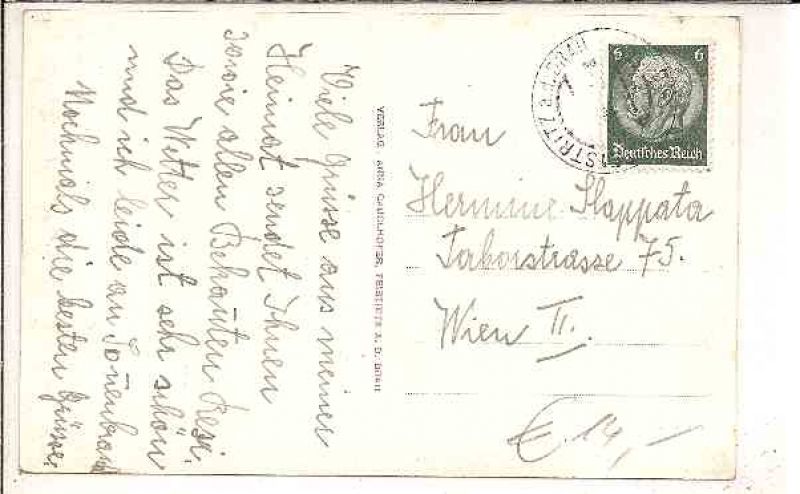 Viele Grüsse aus meiner
Heimat sendet Ihnen
sowie allen Bekannten Resi.
Das Wetter ist sehr schön
und ich leide an
Nochmals die besten Grüsse.
VERLAG ANNA
6 6
Deutsches Reich
Frau
Hermine Slappata
Taborstrasse 75.
Wien II.
€ 14,-